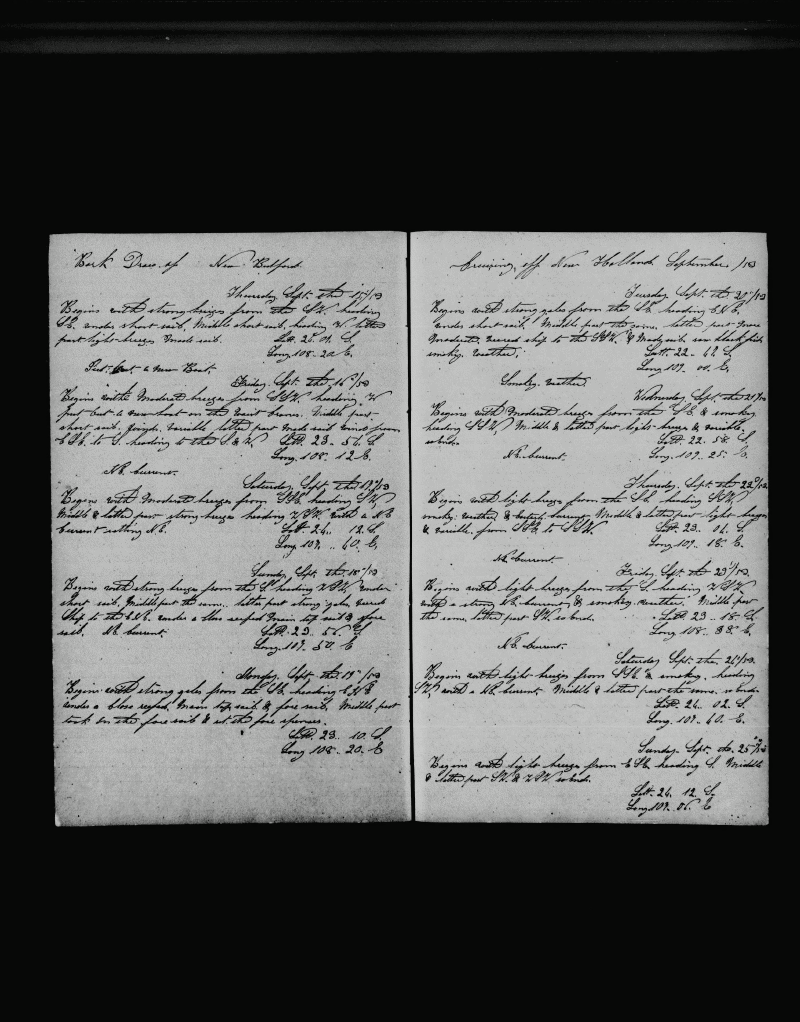 Bark Draco of New Bedford
Thursday Sept. the 15th/53
Begins with strong breezes from the SW. heading
SE. under short sail. Middle short sail, heading W. latter
part light breezes made sail. Latt. 24. 01. S.
Long. 108. 20 E.
Put out a new Boat.
Friday. Sept. the 16th/53
Begins with Moderate breezes from SSW. heading W
put out a new boat on the waist Middle part
short sail. latter part made sail wind from
ESE. to S heading to the S & W. Latt. 23. 56. S
Long. 108. 12 E.
NE. Current.
Saturday Sept. the 17th/53
Begins with Moderate breezes from SSE. heading SW
Middle & latter part strong breezes heading WSW. with a NE
Current setting NE. Latt. 24.. 12. S
Long. 107.. 40. E.
Sunday. Sept. the 18th/53
Begins with strong breezes from the S. heading WSW. under
short sail. Middle part the same. latter part strong gales, veered
Ship to the ENE. under a close reefed Main top sail & fore
sail. NE. Current. Latt. 23.. 56. S.
Long. 107. 50. E
Monday. Sept. the 19th/53
Begins with strong gales from the SE. heading ENE
under a close reefed Main top sail & fore sail. Middle part
took in the fore sail & set the fore spencer.
Latt. 23.. 10. S.
Long 108.. 20. E
Cruising off New Holland September /53
Tuesday Sept. the 20th/53
Begins with strong gales from the SE. heading ENE.
under short sail. Middle part the same. latter part more
Moderate, veered ship to the SSW. & Made sail. saw black fish
smoky weather. Latt. 22.. 42 S.
Long 109. 00. E.
Smoky weather
Wednesday Sept. the 21st/53
Begins with Moderate breezes from the SE. & smoky
heading SSW. Middle & latter part light breezes & variable.
so ends. Latt. 22. 58. S
NE. Current. Long. 109.. 25. E.
Thursday. Sept. the 22d/53
Begins with light breezes from the SE. heading SSW.
smoky weather & Current. Middle & latter part light breezes
& variable, from SSE. to SSW. Latt. 23.. 04. S.
Long 109.. 18. E.
NE Current.
Friday Sept. the 23d/53.
Begins with light breezes from the S. heading WSW
with a strong NE. Current, & smoky weather. Middle part
the same, latter part SW. so ends. Latt 23.. 18. S
Long 108.. 38. E.
NE. Current.
Saturday Sept. the 24th/53.
Begins with light breezes from SSE. & smoky. heading
SW. with a NE. Current. Middle & latter part the same. so ends
Latt. 24.. 02. S
Long. 107.. 40. E.
Sunday. Sept. the. 25th/53
Begins with light breezes from ESE. heading S. Middle
& latter part SW. & WSW so ends.
Latt. 24. 12. S.
Long. 107.. 06. E